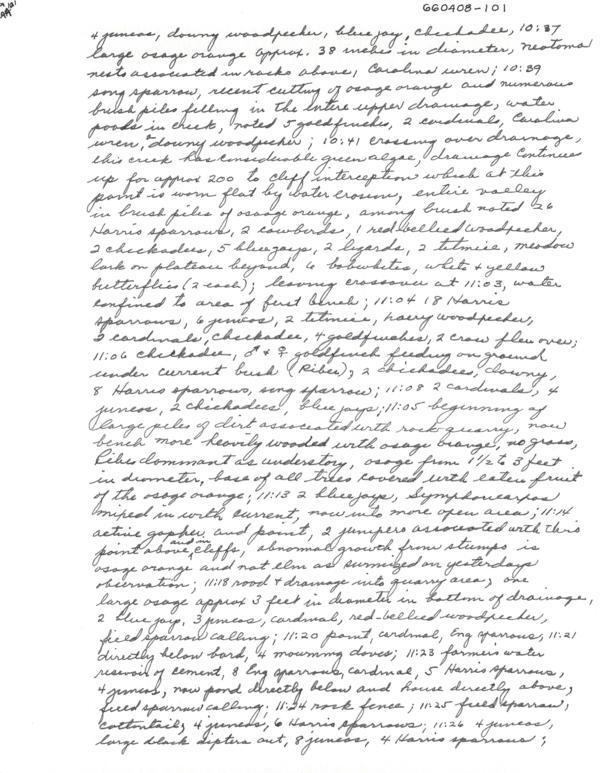 660408-101
4 juncos, downy woodpecker, blue jay, chickadee, 10:37
large osage orange approx. 38 inches in diameter, neotoma
nests associated in rocks above, Carolina wren; 10:39
song sparrow, recent cutting of osage orange and numerous
brush piles filling in the entire upper drainage, water
pools in creek, noted 5 goldfinches, 2 cardinals, Carolina
wren, downy woodpecker; 10:41 crossing over drainage,
this creek has considerable green algae, drainage continues
up for approx 200 to cliff interception which at this
point is worn flat by water erosion, entire valley
in brush piles of osage orange, among brush noted 26
Harris sparrows, 2 cowbirds, 1 red-bellied woodpecker,
2 chickadees, 5 blue jays, 2 lizards, 2 titmice, meadow
lark on plateau beyond, 6 bobwhites, white & yellow
butterflies (2 each); leaving crossover at 11:03, water
confined to area of first bench; 11:04 18 Harris
sparrows, 6 juncos, 2 titmice, hairy woodpecker,
2 cardinals, chickadee, 4 goldfinches, 2 crow flew over;
11:06 chickadee, ♂ & ♀ goldfinch feeding on ground
under current bush (Ribes); 2 chickadees, downy,
8 Harris sparrows, song sparrow; 11:08 2 cardinals, 4
juncos, 2 chickadees, blue jays; 11:05 beginning of
large piles of dirt associated with rock quarry, now
bench more heavily wooded with osage orange, no grass,
Ribes dominant as understory, osage from 1½ to 3 feet
in diameter, base of all trees covered with eaten fruit
of the osage orange; 11:13 2 blue jays, Symphoricarpos
mixed in with current, now into more open area; 11:14
active gopher and point, 2 junipers associated with this
point above and in cliffs, abnormal growth from stumps is
osage orange and not elm as surmized on yesterdays
observation; 11:18 road & drainage into quarry area, one
large osage approx 3 feet in diameter in bottom of drainage,
2 blue jay, 3 juncos, cardinal, red-bellied woodpecker,
field sparrow calling; 11:20 point, cardinal, Eng sparrows, 11:21
directly below bard, 4 mourning doves; 11:23 farmers water
resevoir of cement, 8 Eng sparrows, cardinal, 5 Harris sparrows,
4 juncos, now pond directly below and house directly above,
field sparrow calling; 11:24 rock fence; 11:25 field sparrow,
cottontail, 4 juncos, 6 Harris sparrows; 11:26 4 juncos,
large black diptera out, 8 juncos, 4 Harris sparrows;